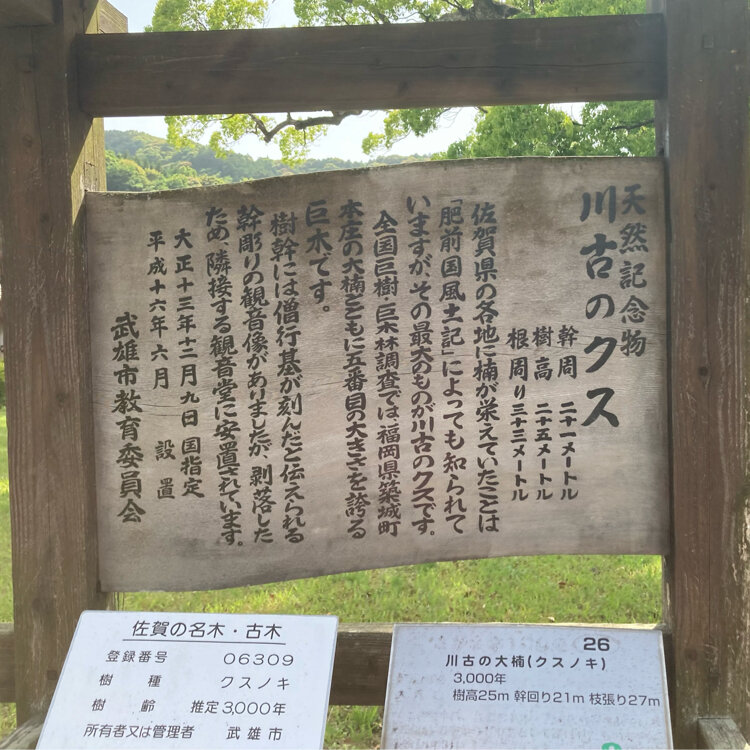 天然記念物
川古のクス
幹周 二十一メートル
樹高 二十五メートル
根周り三十三メートル
佐賀県の各地に楠が栄えていたことは
「肥前国風土記」によっても知られて
いますが、その最大のものが川古のクスです。
全国巨樹・巨木林調査では、福岡県築城町
本庄の大楠とともに五番目の大きさを誇る
巨木です。
樹幹には僧行基が刻んだと伝えられる
幹彫りの観音像がありましたが、剥落した
ため、隣接する観音堂に安置されています。
大正十三年十二月九日国指定
平成十六年六月 設置
武雄市教育委員会
佐賀の名木・古木
登録番号 06309
樹種 クスノキ
樹齢 推定3,000年
所有者又は管理者 武雄市
26
川古の大楠(クスノキ)
3,000年
樹高25m 幹回り21m 枝張り27m